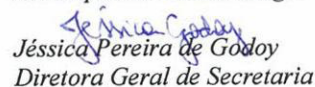 Jéssica Godoy
Jéssica Pereira de Godoy
Diretora Geral de Secretaria